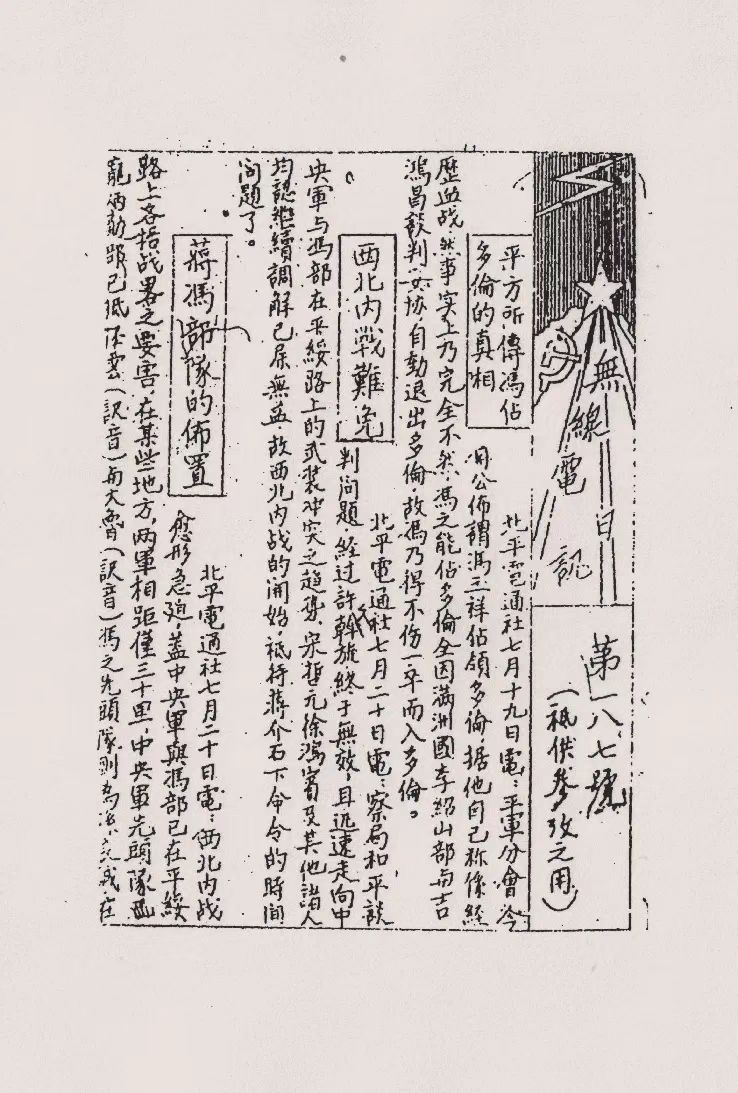 無線電日記
第一八七號
(祗供參攷之用)
平方所傳馮佔
多倫的真相
北平電通社七月十九日電：平軍分會今
開公佈謂馮玉祥佔領多倫，据他自己称係經
歷血战，然事实上乃完全不然，馮之能佔多倫全因滿洲國李紹山部与吉
鴻昌談判妥协自動退出多倫故馮乃得不伤一卒而入多倫。
西北内戰難免
北平電通社七月二十日電：察局和平談
判问題，经过許 斡旋終于無效，且迅速走向中
央軍与馮部在平綏路上的武装冲突之趋势，宋哲元徐 及其他諸人
均認继續調解已属無益，故西北内战的開始，祗待蔣介石下命令的時间
问題了。
蔣馮部隊的佈置
北平電通社七月二十日電：西北内战
愈形急迫，蓋中央軍與馮部已在平綏
路上各据战畧之要害，在某些地方，两軍相距僅三十里，中央軍先頭隊
龐炳勛部已抵 (訳音)与大 (訳音)馮之先頭隊則為 在